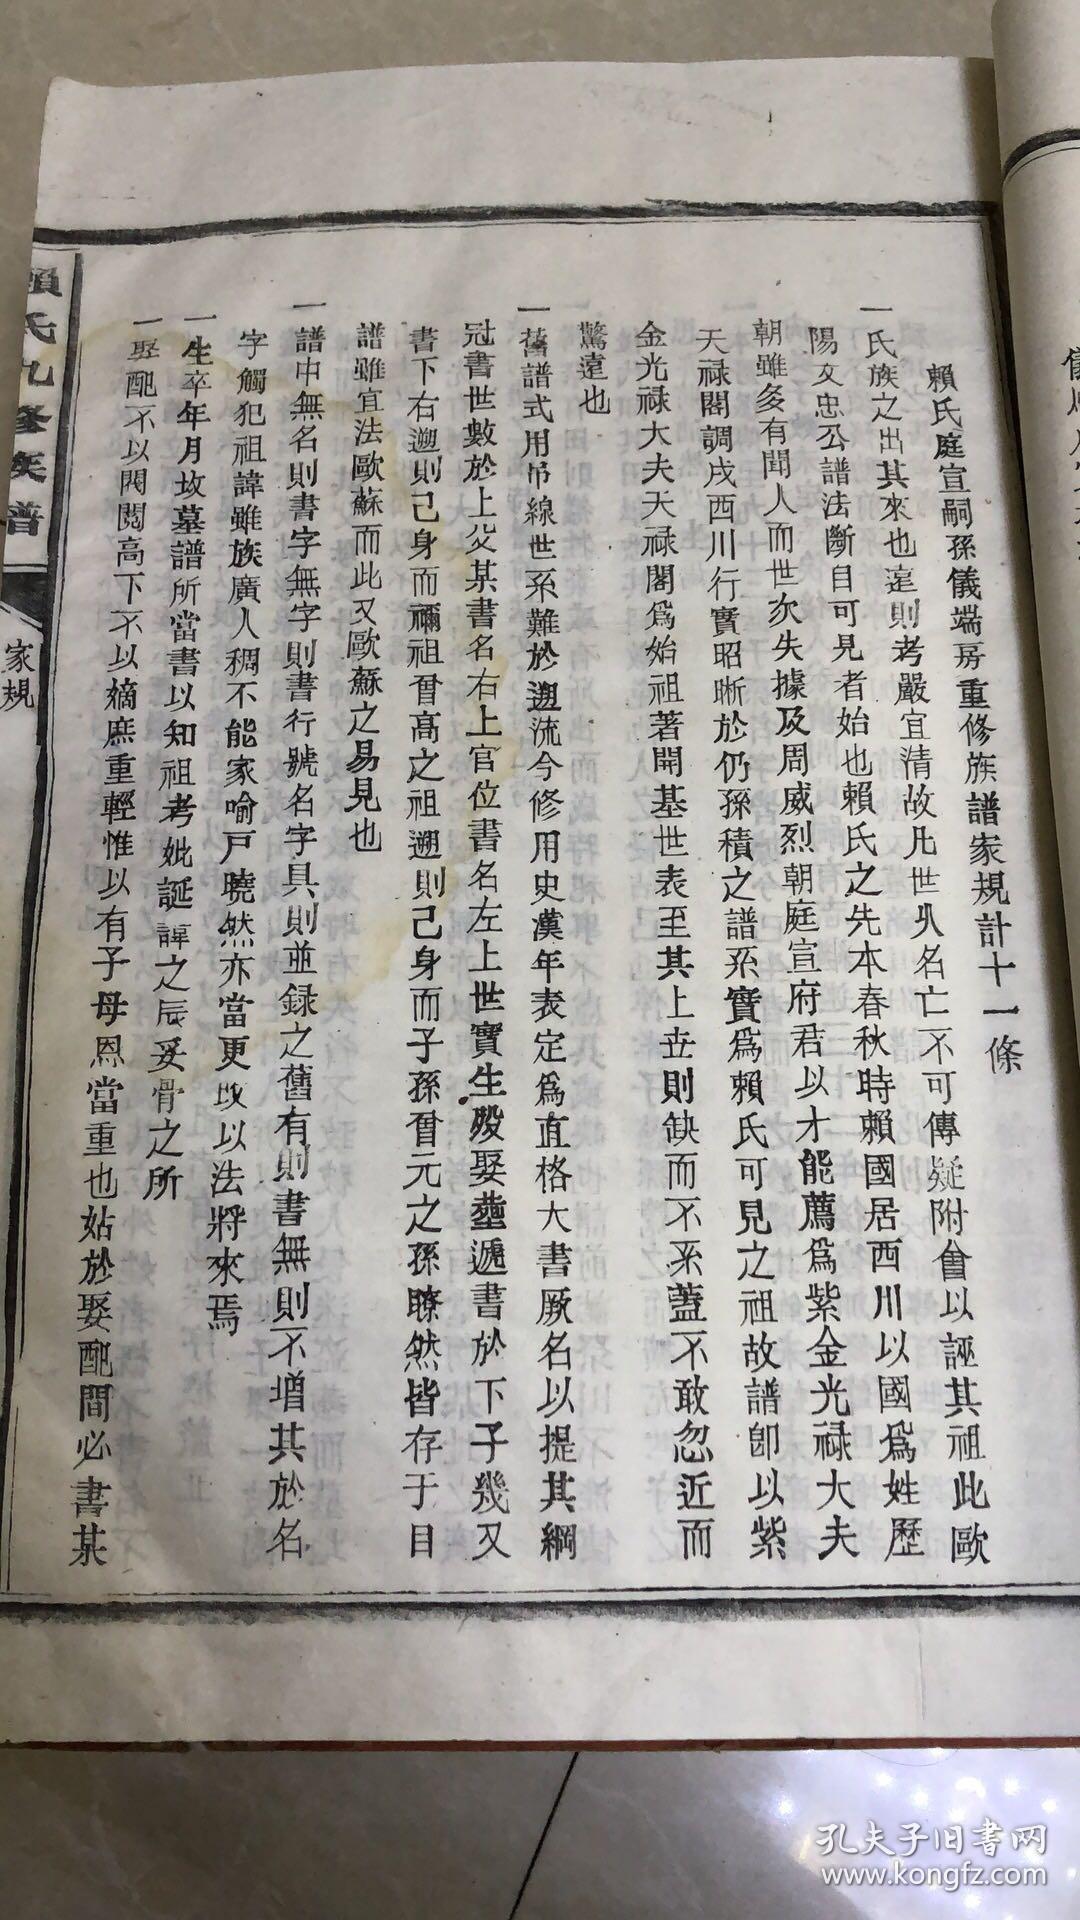 賴氏庭宣嗣孫儀端房重修族譜家規計十一條
一氏族之出其來也遠則考嚴宜清故凡世久名亡不可傳疑附會以誣其祖此歐
陽文忠公譜法斷自可見者始也賴氏之先本春秋時賴國居西川以國爲姓歷
朝雖多有聞人而世次失據及周威烈朝庭宣府君以才能薦爲紫金光禄大夫
天禄閣調戍西川行實昭晰於仍孫積之譜系實爲賴氏可見之祖故譜卽以紫
金光禄大夫天禄閣爲始祖著開基世表至其上世則缺而不系蓋不敢忽近而
驚遠也
一舊譜式用吊線世系難於遡流今修用史漢年表定爲直格大書厥名以提其綱
冠書世數於上父某書名右上官位書名左上世實生殁娶塟遞書於下子幾又
書下右遡則己身而禰祖曾高之祖遡則己身而子孫曾元之孫瞭然皆存于目
譜雖宜法歐蘇而此又歐蘇之易見也
一譜中無名則書字無字則書行號名字具則並録之舊有則書無則不增其於名
字觸犯祖諱雖族廣人稠不能家喻戸曉然亦當更改以法將來焉
一生卒年月坟墓譜所當書以知祖考妣誕諱之辰妥骨之所
一娶配不以閥閲高下不以嫡庶重輕惟以有子母恩當重也姑於娶配間必書某
賴氏九修族譜
家規
孔夫子旧書网
www.kongfz.com